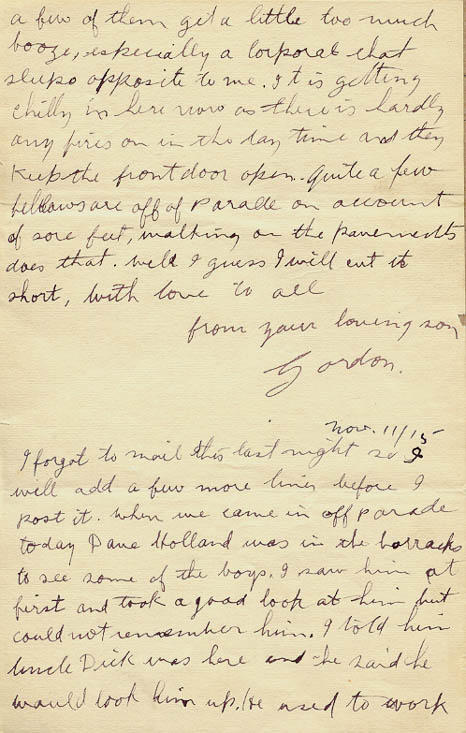 a few of them get a little too much
booze, especially a Corporal that
sleeps opposite to me. It is getting
chilly in here now as there is hardly
any fires on in the day time and they
keep the front door open. Quite a few
fellows are off of parade on account
of sore feet, walking on the pavements
does that. Well I guess I will cut it
short, with love to all
from your loving son
Gordon.
Nov. 11/15
I forgot to mail this last night so I
well add a few more lines before I
post it. When we came in off parade
today Dave Holland was in the barracks
to see some of the boys. I saw him at
first and took a good look at him but
could not remember him. I told him
Uncle Dick was here and he said he
would look him up. He used to work